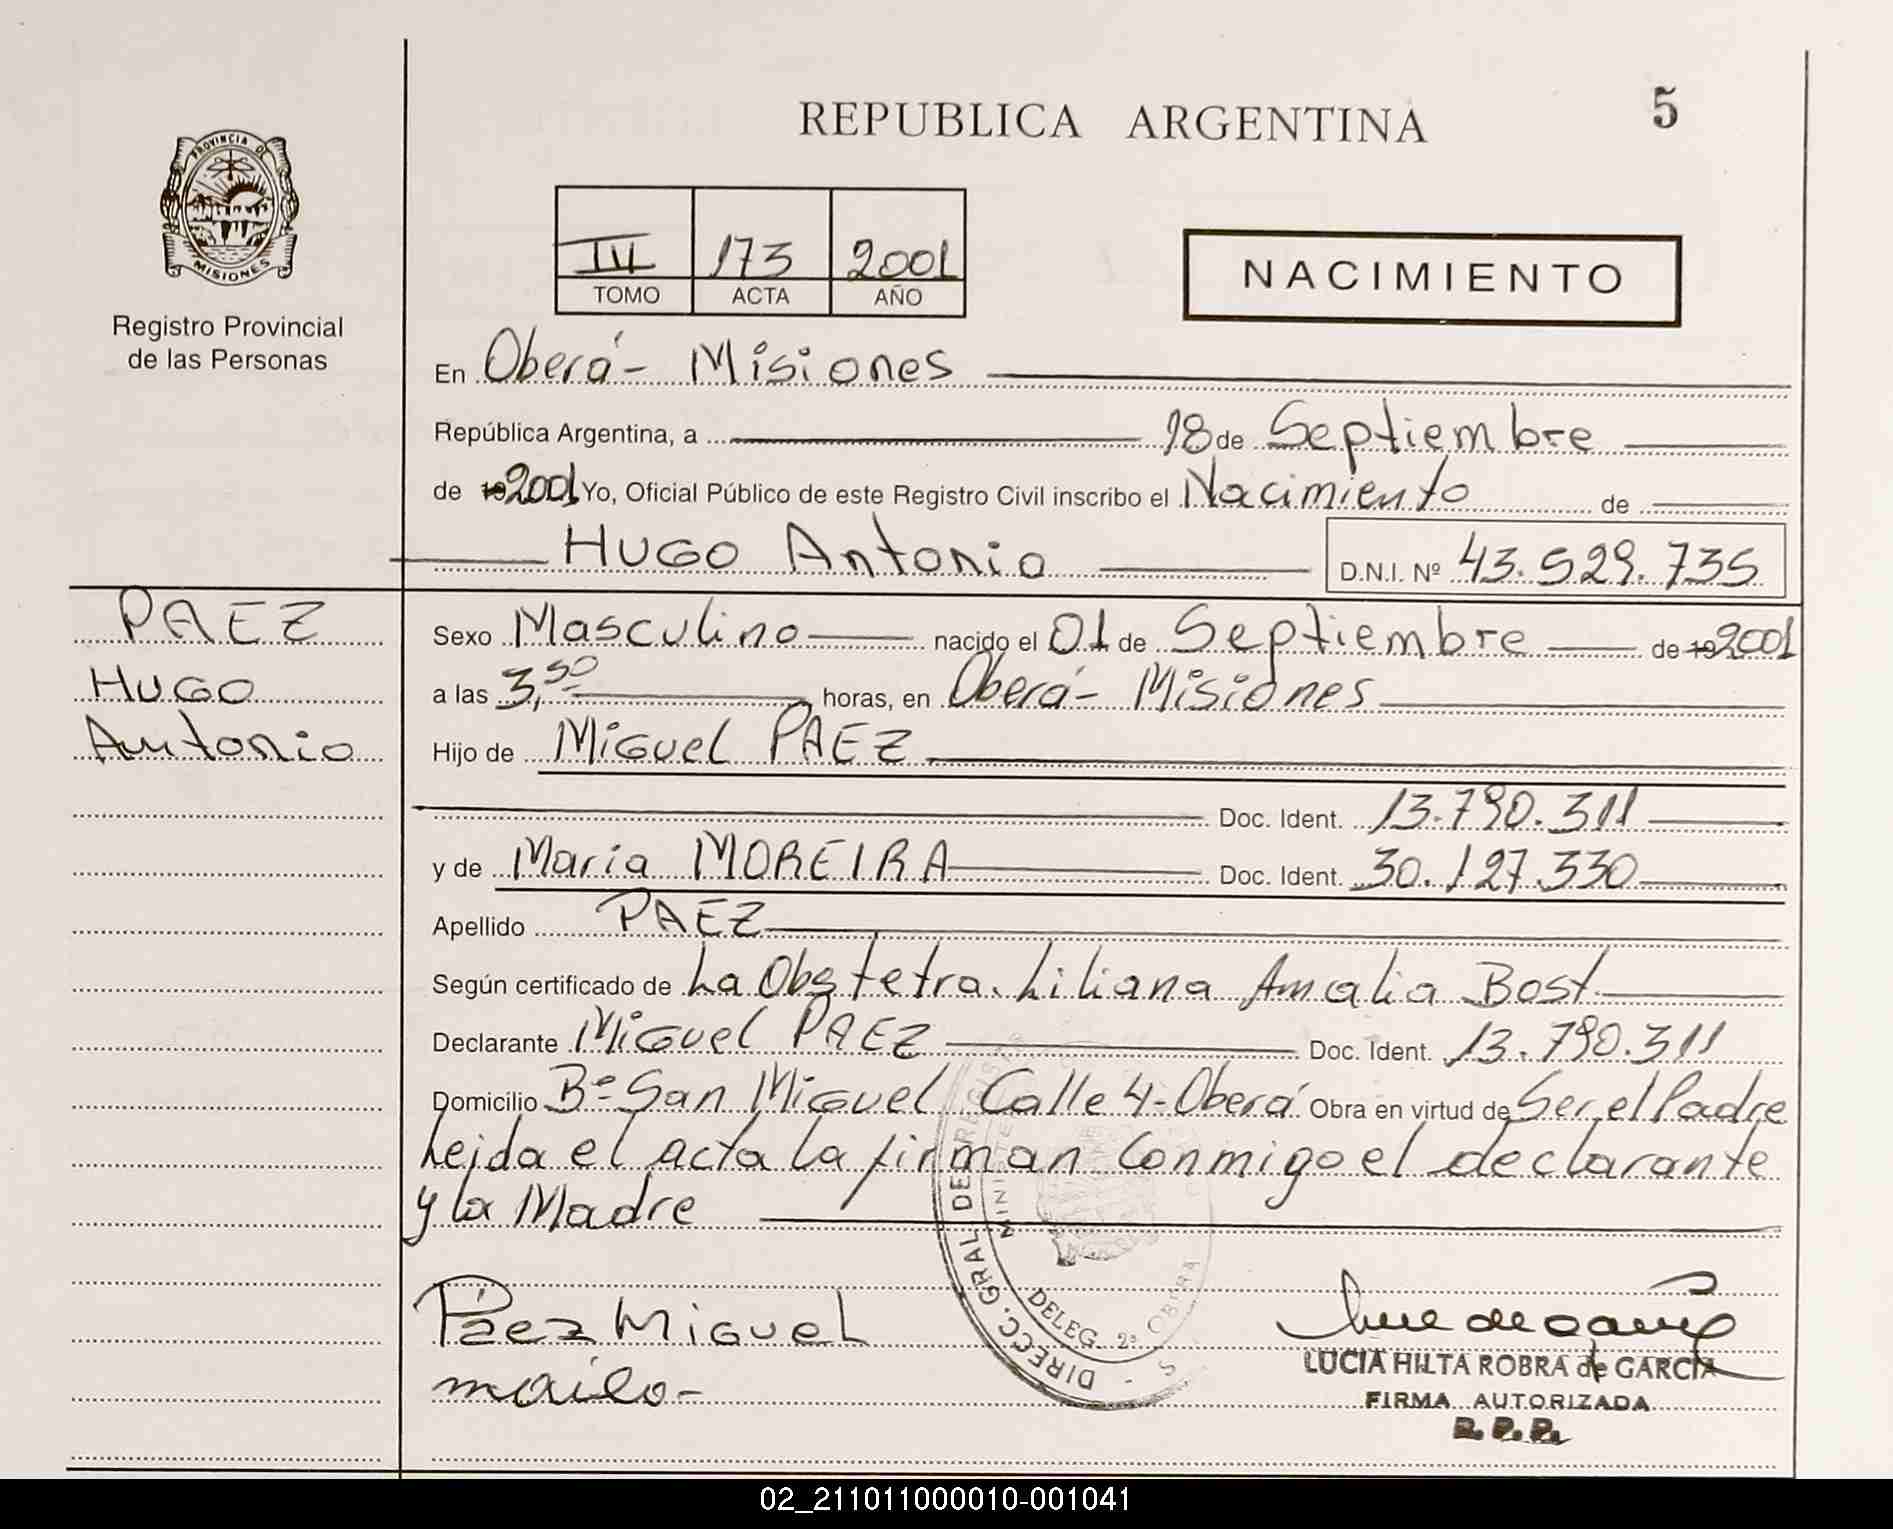 REPUBLICA ARGENTINA
5
PROVINCIA DE
MISIONES
Registro Provincial
de las Personas
III 173 2001
TOMO ACTA AÑO
NACIMIENTO
En Oberá - Misiones
República Argentina, a 18 de Septiembre
de 19 2001 Yo, Oficial Público de este Registro Civil inscribo el Nacimiento de
HUGO Antonio D.N.I. Nº 43.529.735
PAEZ
HUGO
Antonio
Sexo Masculino nacido el 01 de Septiembre de 19 2001
a las 3,50 horas, en Oberá - Misiones
Hijo de Miguel PAEZ
Doc. Ident. 13.790.311
y de Maria MOREIRA Doc. Ident. 30.127.330
Apellido PAEZ
Según certificado de La Obstetra. Liliana Amalia Bost.
Declarante Miguel PAEZ Doc. Ident. 13.790.311
Domicilio Bº San Miguel Calle 4 - Oberá Obra en virtud de Ser el Padre
Leida el acta la firman Conmigo el declarante
y la Madre
Páez Miguel
DIRECC. GRAL DE REGISTR
DELEG. 2ª OBERA
LUCIA HILTA ROBRA de GARCIA
FIRMA AUTORIZADA
R.P.P.
02_211011000010-001041